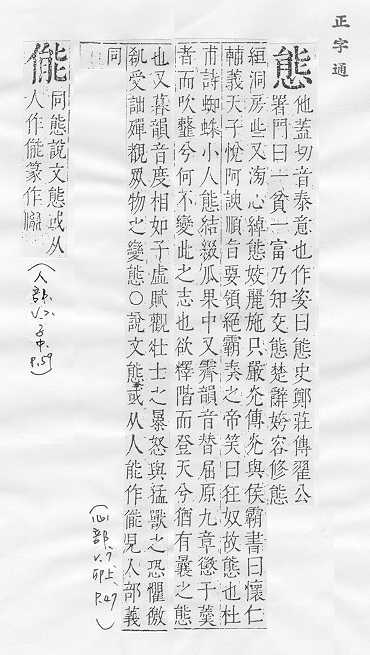 正字通
態
他蓋切音泰意也作姿曰態史鄭莊傳翟公
署門曰一貧一富乃知交態楚辭姱容修態
絙洞房些又滂心綽態姣麗施只嚴光傳光與侯霸書曰懷仁
輔義天子悅阿諛順旨要領絕霸奏之帝笑曰狂奴故態也杜
甫詩蜘蛛小人態結綴瓜果中又霽韻音替屈原九章懲于羹
者而吹兮何不變此之志也欲釋階而登天兮猶有曩之態
也又暮韻音度相如子虛賦觀壯士之暴怒與猛獸之恐懼徼
受詘殫覩眾物之變態○說文態或从人能作見人部義
同
(心部,V.卯上,P.47)
同態說文態或从
人作篆作
(人部,V.子中,P.59)